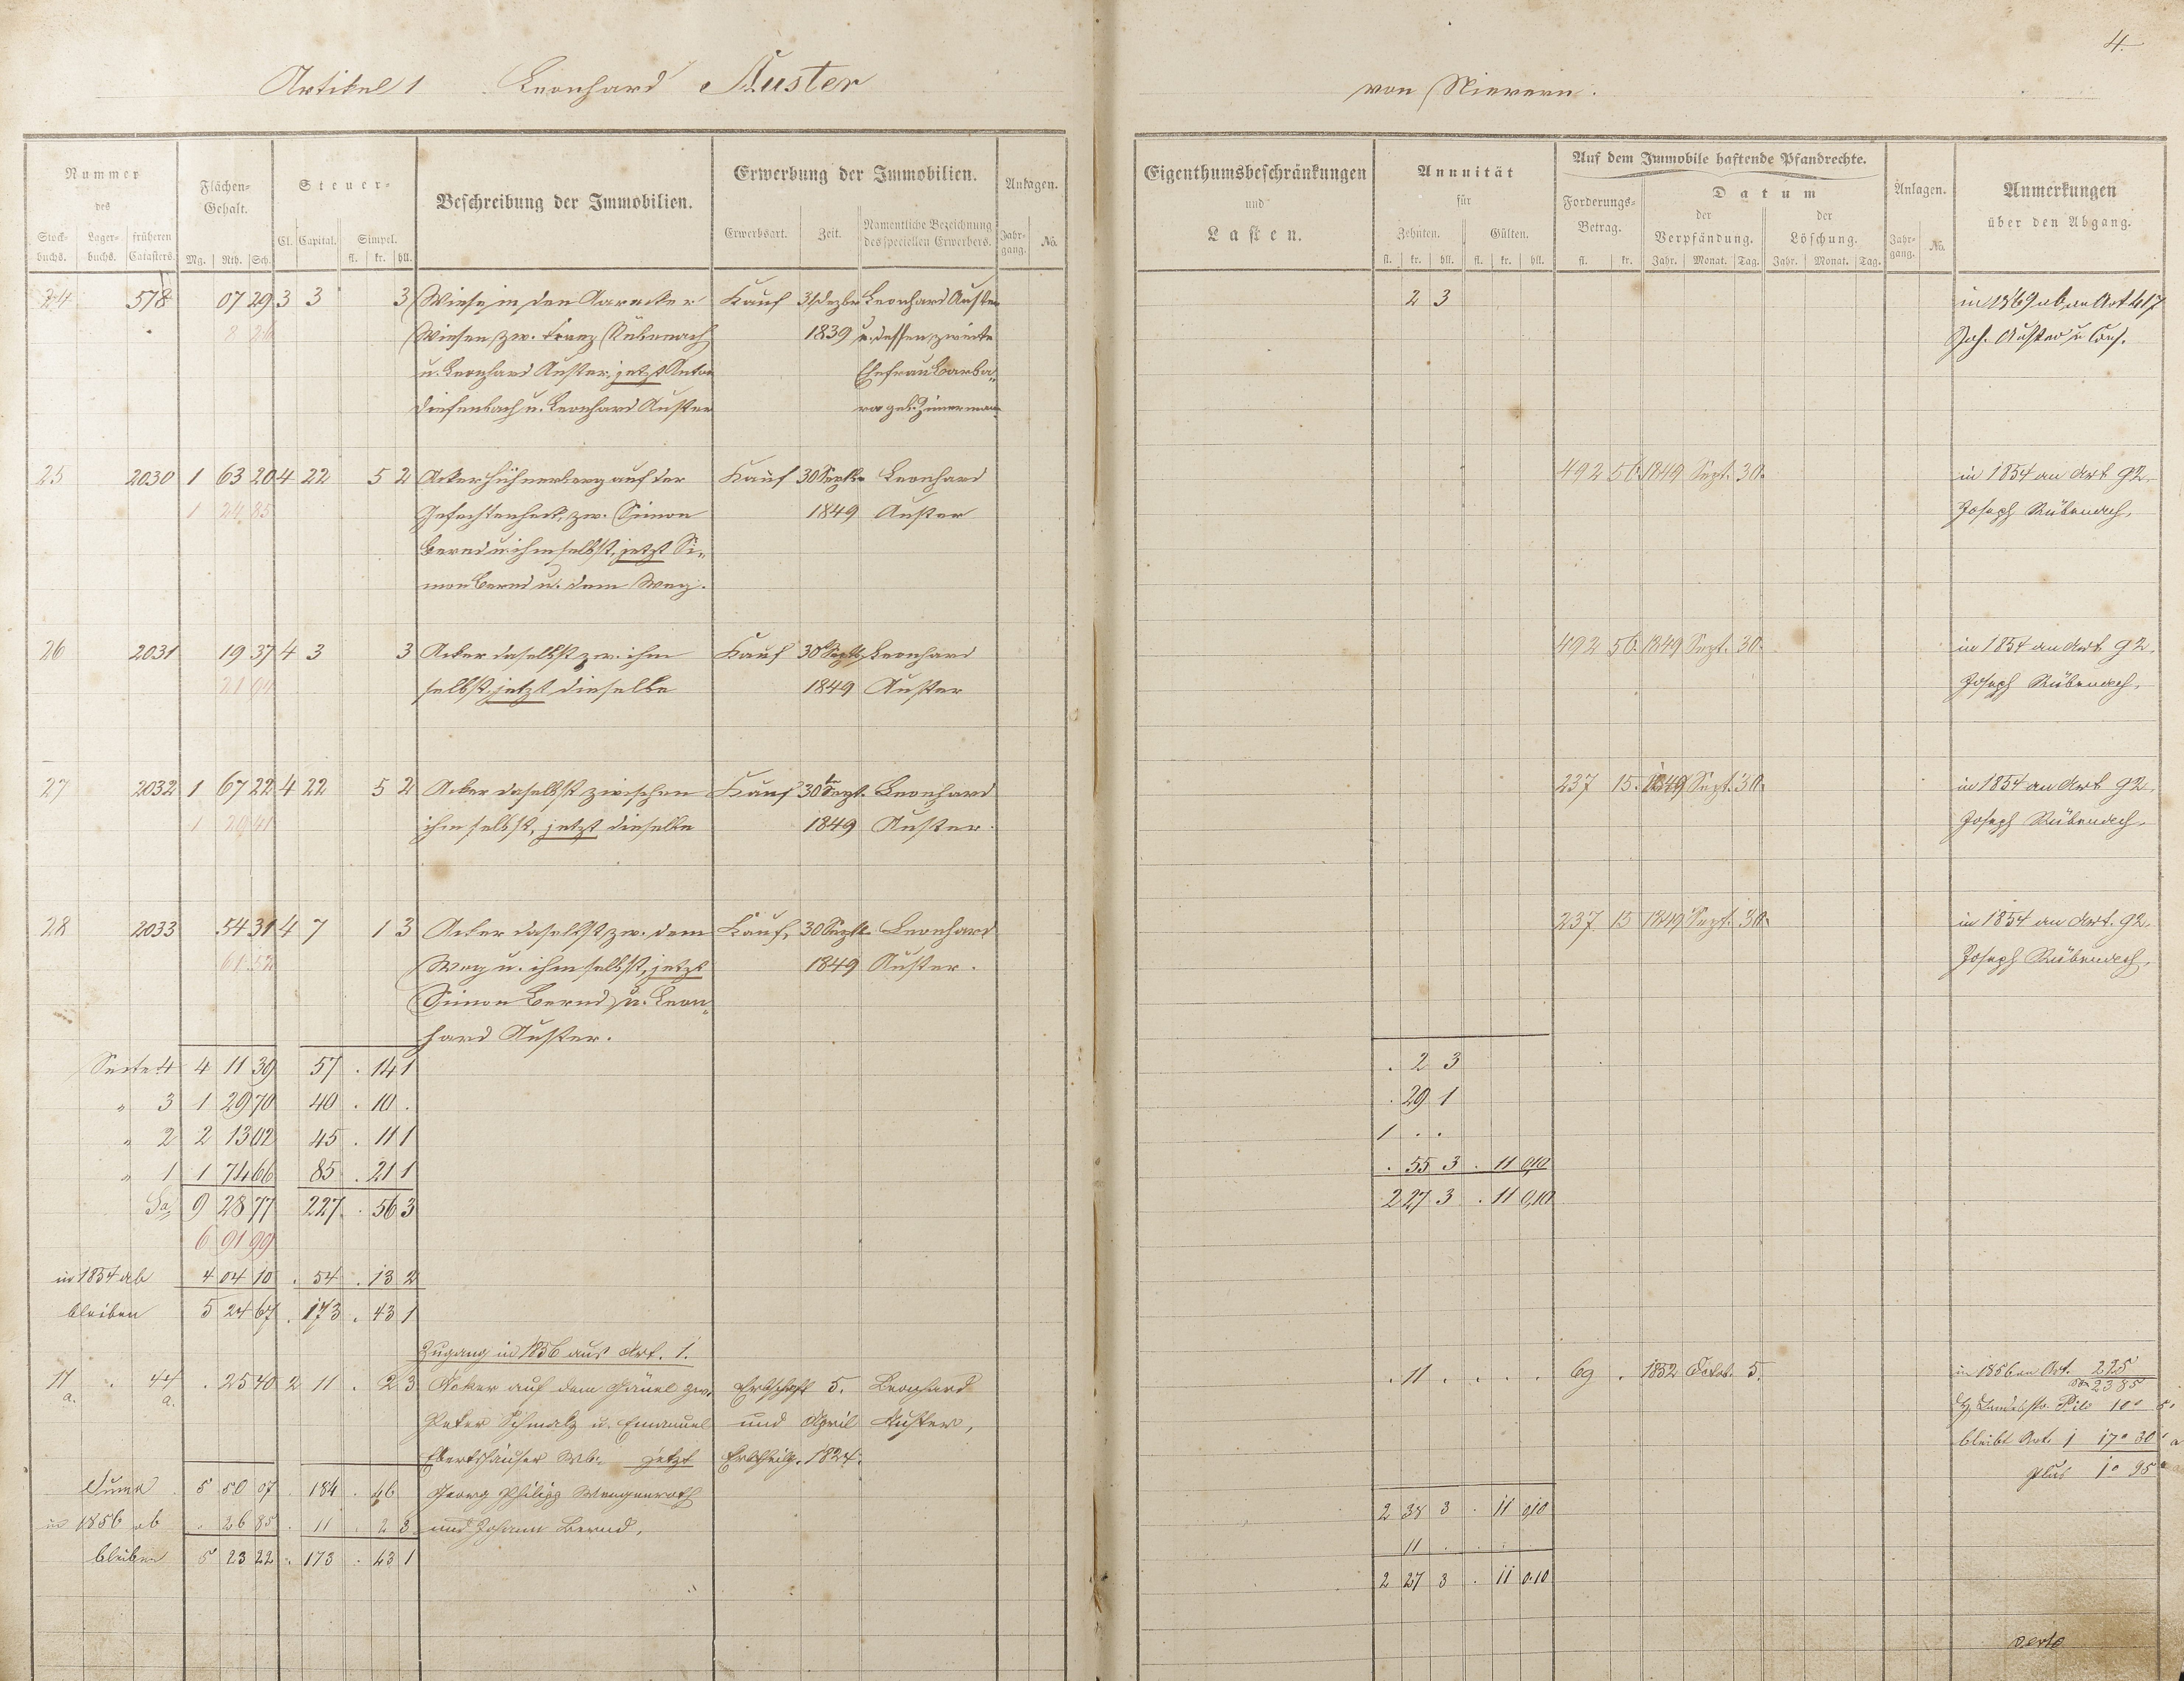 4.
Artikel 1 Leonhard Auster von Nievern.
Nummer des
Stockbuchs. Lagerbuchs. früheren Catasters.
Flächen-Gehalt.
Mg. Rth. Sch.
Steuer-
Cl. Capital. Simpel.
fl. kr. hll.
Beschreibung der Immobilien.
Erwerbung der Immobilien.
Erwerbsart. Zeit. Namentliche Bezeichnung des speciellen Erwerbers.
Anlagen.
Jahrgang. No.
Eigenthumsbeschränkungen und Lasten.
Annuität für
Zehnten. Gülten.
fl. kr. hll. fl. kr. hll.
Auf dem Immobile haftende Pfandrechte.
Forderungs-Betrag. Datum
der Verpfändung. der Löschung.
fl. kr. Jahr. Monat. Tag. Jahr. Monat. Tag.
Anlagen.
Jahrgang. No.
Anmerkungen über den Abgang.
24 578 07 29 3 3 3 Wiese in den Kauf 31 Dezbr Leonhard Auster 2 3 in 1869 ab an Art 417
8 26 Wiesen, zw. Franz Rübenach 1839 u. dessen zweite Joh. Auster u Cons.
u. Leonhard Auster, jetzt Anton Ehefrau Barba-
Diefenbach u. Leonhard Auster ra geb. Zimerman
25 2030 1 63 20 4 22 5 2 Acker Hühnerberg auf der Kauf 30 Septbr Leonhard 492 56. 1849 Sept. 30. in 1854 an Art 92.
1 24 85 zw. Simon 1849 Auster Joseph Rübenach.
Bernd u. ihm selbst, jetzt Si-
mon Bernd u. dem Weg.
26 2031 19 37 4 3 3 Acker daselbst zw. ihm Kauf 30 Septb. Leonhard 492 56. 1849 Sept. 30. in 1854 an Art 92.
21 94 selbst, jetzt dieselbe 1849 Auster Joseph Rübenach.
27 2032 1 67 22 4 22 5 2 Acker daselbst zwischen Kauf 30 Sept. Leonhard 237 15. 1849 Sept. 30. in 1854 an Art 92.
1 29 41 ihm selbst, jetzt dieselbe 1849 Auster. Joseph Rübenach.
28 2033 54 31 4 7 1 3 Acker daselbst, zw. dem Kauf, 30 Septb. Leonhard 237 15 1849 Sept. 30. in 1854 an Art. 92.
61 52 Weg u. ihm selbst, jetzt 1849 Auster. Joseph Rübenach.
Simon Bernd u. Leon-
hard Auster.
Seite 4 4 11 39 57 . 14 1 . 2 3
" 3 1 29 70 40 . 10 . . 29 1
" 2 2 13 02 45 . 11 1 1 . .
" 1 1 74 66 85 . 21 1 . 55 3 . 11 0,10
Sa. 9 28 77 227 . 56 3 2 27 3 . 11 0,10
6 91 99
in 1854 ab 4 04 10 . 54 . 13 2
bleiben 5 24 67 . 173 . 43 1
Zugang in 1856 aus Art. 1.
17 a. . 44 a. . 25 40 2 11 . 2 3 Acker auf dem zw. Erbschaft 5. Leonhard . 11 . . . . 69 . 1852 Octob. 5. in 1856 an Art. 225
Peter Schmalz u. Emanuel und April Auster,
Ebertshäuser Wb. jetzt Erbtheilg. 1824. bleibt Art. 1
Georg Philipp Wengenroth plus
und Johann Bernd.
Suma 5 50 07 . 184 . 46 2 38 3 . 11 0,10
in 1856 ab . 26 85 . 11 . 2 3 11 . . .
bleiben 5 23 22 . 173 . 43 1 2 27 3 . 11 0.10
verte